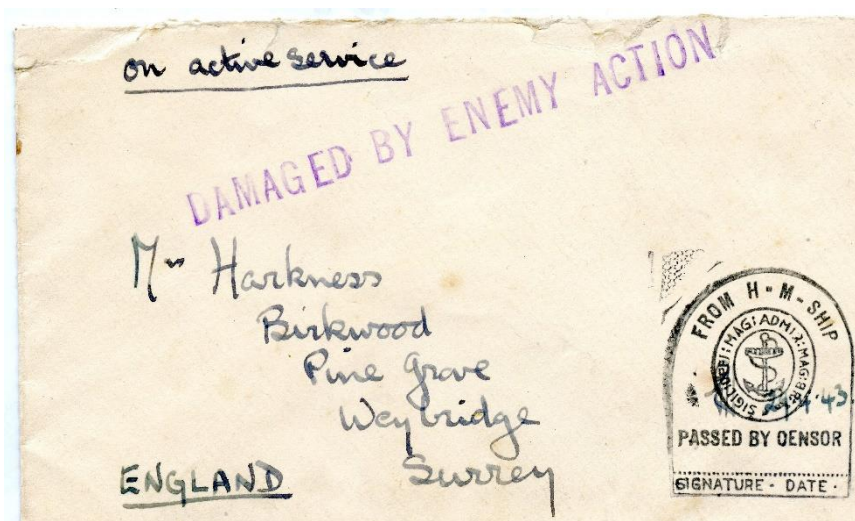 on active service
DAMAGED BY ENEMY ACTION
Mrs Harkness
Birkwood
Pine Grove
Weybridge
Surrey
ENGLAND
FROM H-M-SHIP
4.43
PASSED BY CENSOR
SIGNATURE - DATE -